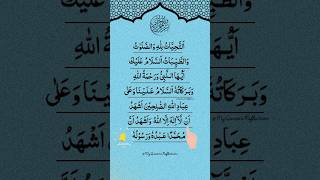 اَلتَّحِيَّاتُ لِلّٰهِ وَالصَّلَوٰتُ
وَالطَّيِّبَاتُ اَلسَّلَامُ عَلَيْكَ
اَيُّهَا النَّبِيُّ وَرَحْمَةُ اللّٰهِ
وَبَرَكَاتُهُ اَلسَّلَامُ عَلَيْنَا وَعَلٰى
عِبَادِ اللّٰهِ الصّٰلِحِيْنَ اَشْهَدُ
اَنْ لَّا اِلٰهَ اِلَّا اللّٰهُ وَاَشْهَدُ اَنَّ
مُحَمَّدًا عَبْدُهٗ وَرَسُوْلُهٗ